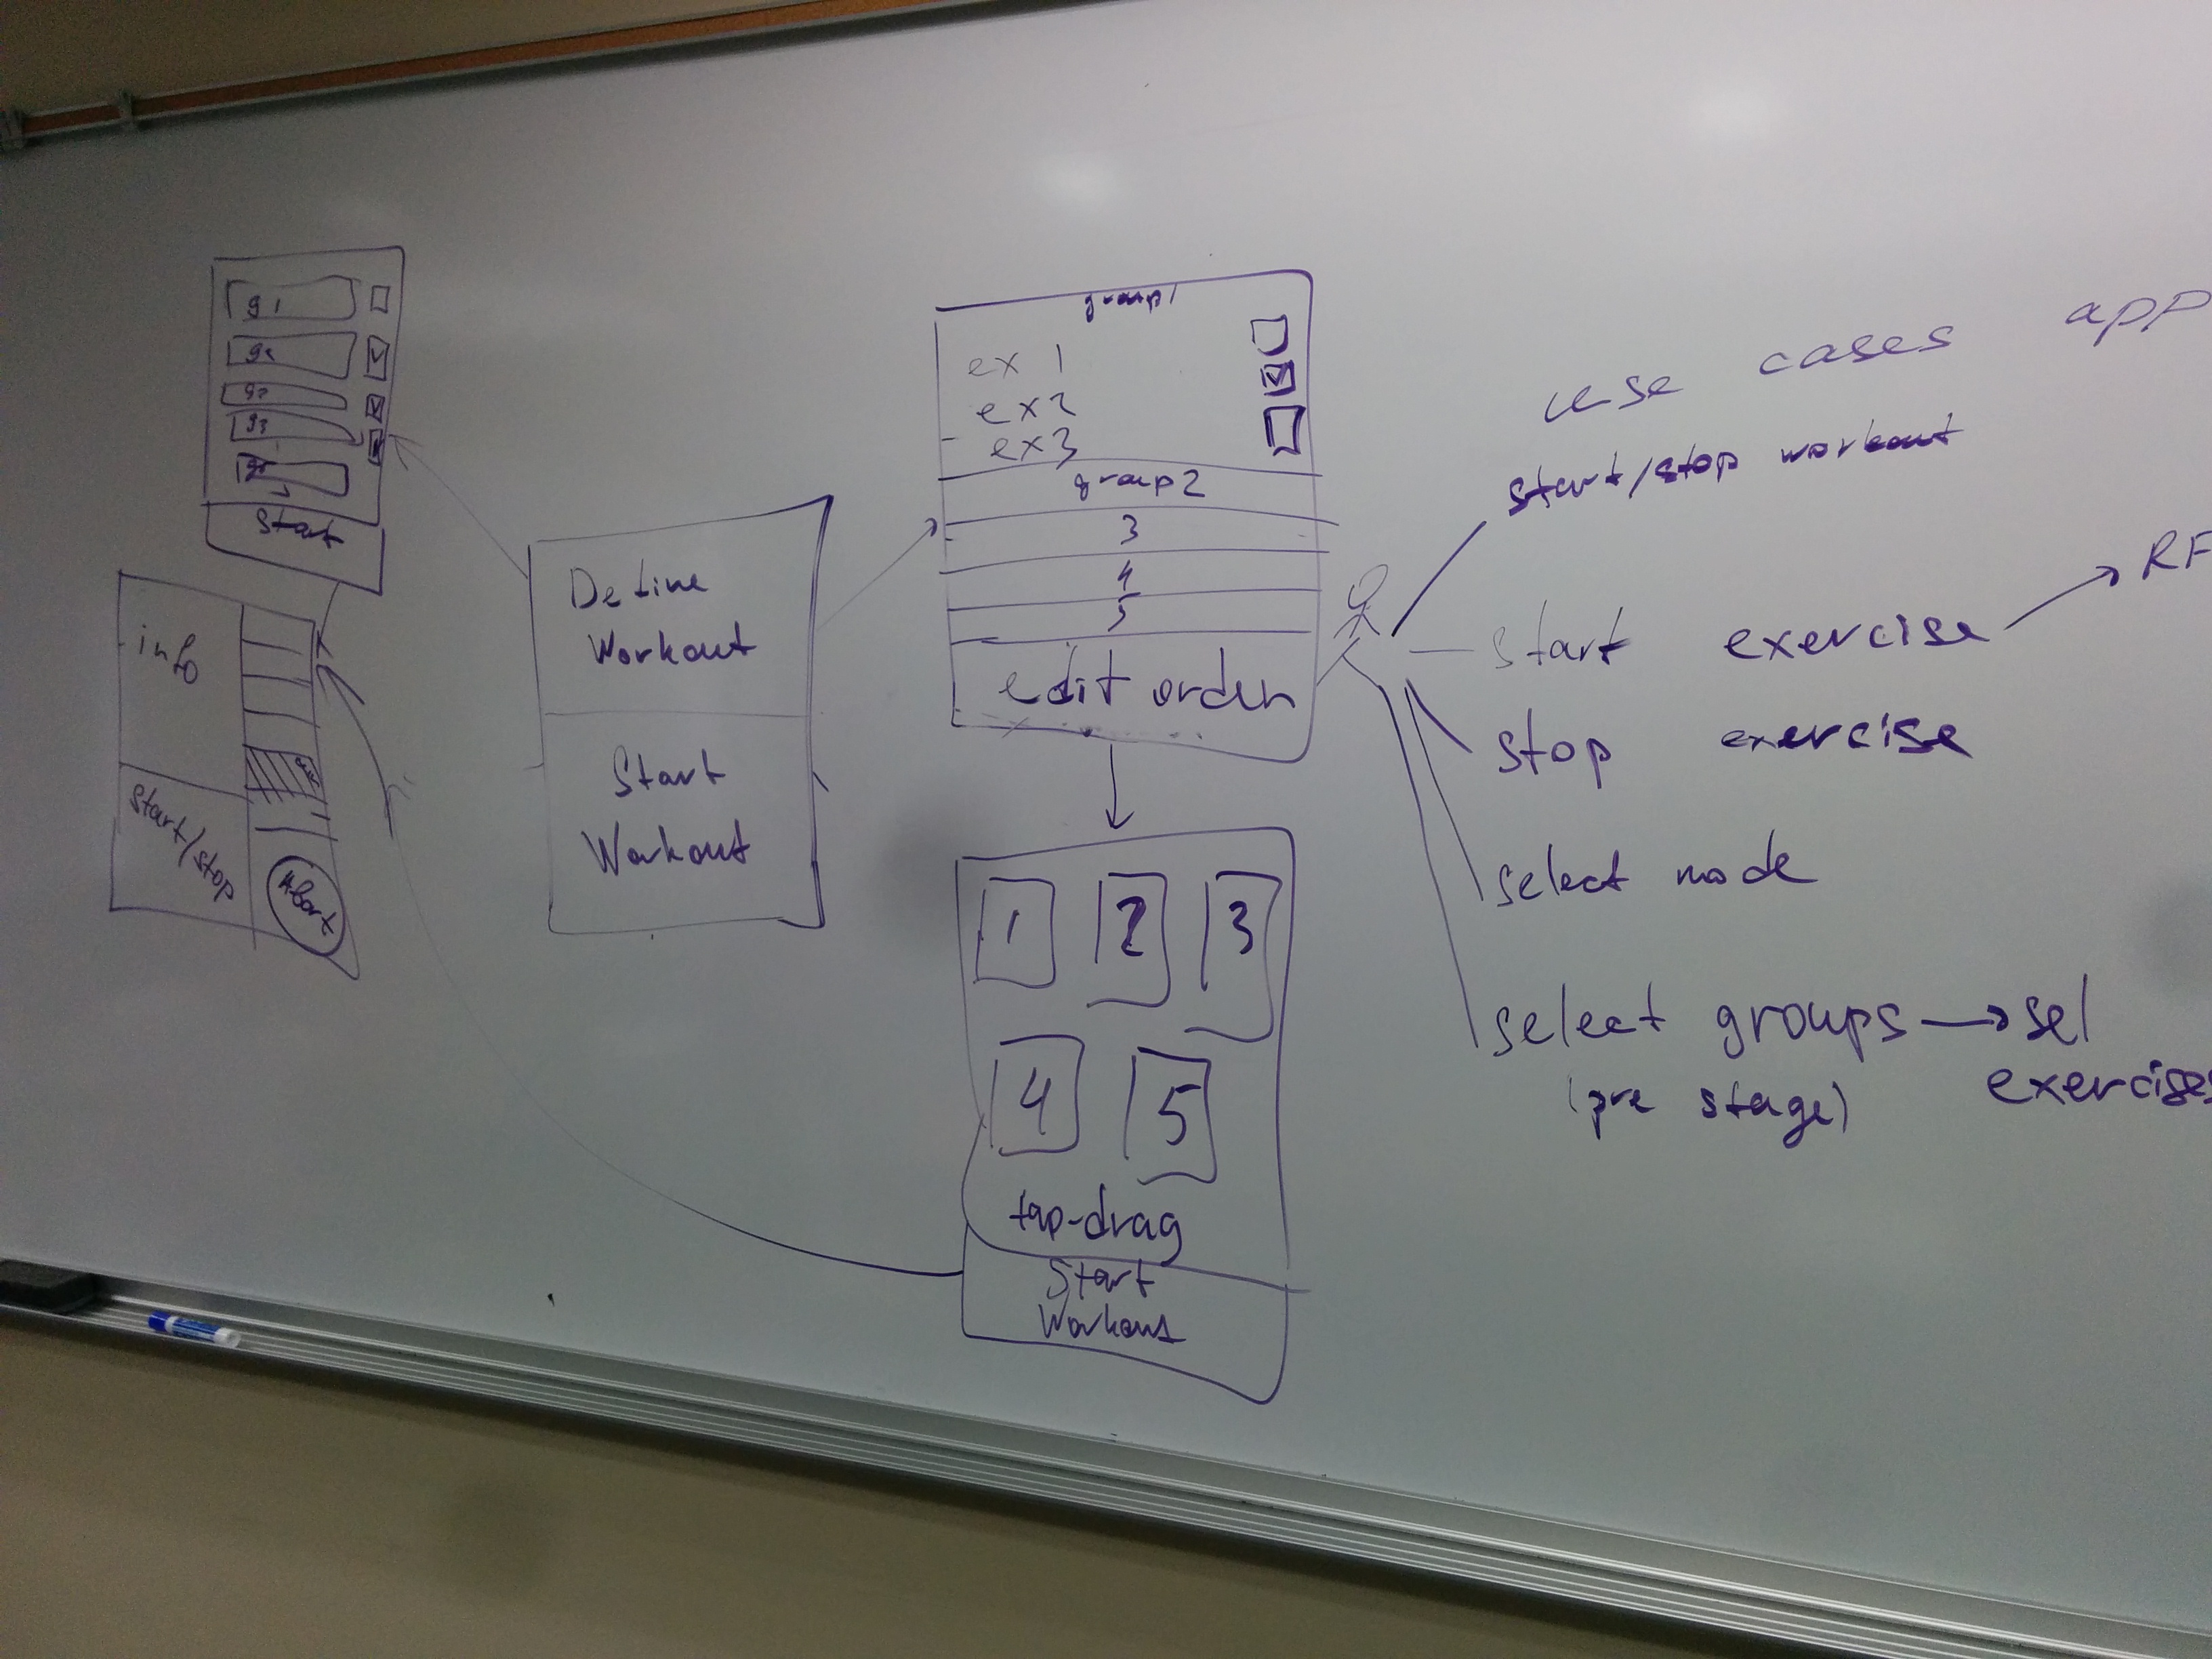 g1
g2
g3
Start
info
start/stop
Abort
Define
Workout
Start
Workout
group1
ex 1
ex2
ex3
group2
3
4
5
edit order
1
2
3
4
5
tap-drag
Start
Workout
use cases app
start/stop workout
start exercise → RF
stop exercise
select mode
select groups → sel
(pre stage) exercises